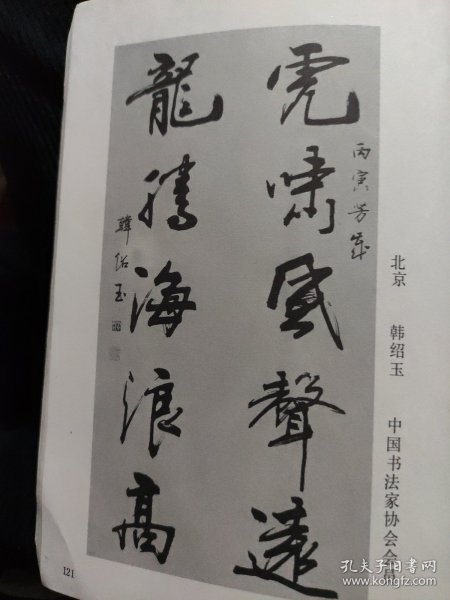 虎啸風聲遠
龍騰海浪高
丙寅芳年
韓紹玉
北京 韩绍玉 中国书法家协会会
121
孔夫子旧书网
www.kongfz.com